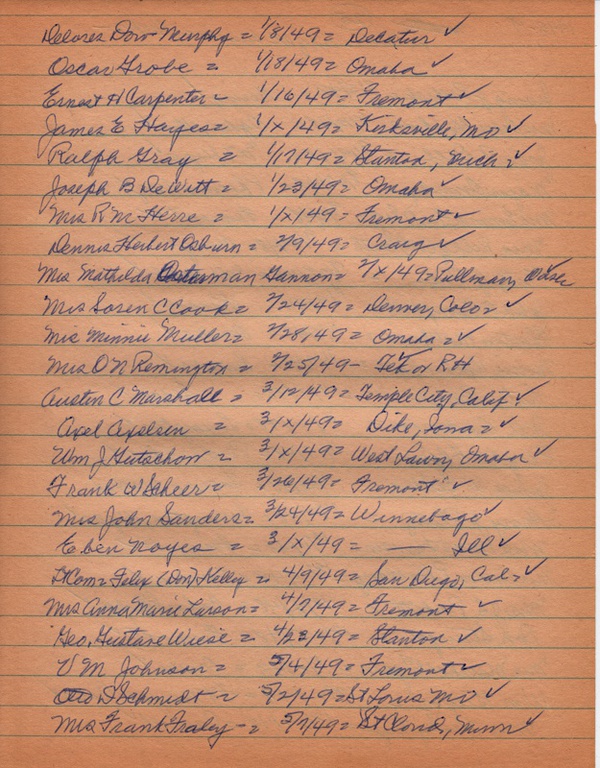 Delores Dorr Murphy = 1/8/49 = Decatur ✓
Oscar Grobe = 1/18/49 = Omaha ✓
Ernest H Carpenter = 1/16/49 = Fremont ✓
James E Hayes = 1/x/49 = Kirksville, Mo ✓
Ralph Gray = 1/17/49 = Stanton, ✓
Joseph B DeWitt = 1/23/49 = Omaha ✓
Mrs R M Herre = 1/x/49 = Fremont ✓
Dennis Herbert Osburn = 2/9/49 = Craig ✓
Mrs Mathilda Osterman Gannon = 2/x/49 = Pullman,
Mrs Soren C Cook = 2/24/49 = Denver, Colo ✓
Mrs Minnie Muller = 2/28/49 = Omaha = ✓
Mrs O N Remington = 2/25/49 - Tek or RH
Austin C Marshall = 3/12/49 = Temple City, Calif ✓
Axel Axelsen = 3/x/49 = Dike, Iowa = ✓
Wm J Gutschow = 3/x/49 = West Lawn, Omaha ✓
Frank W Scheer = 3/26/49 = Fremont ✓
Mrs John Sanders = 3/24/49 = Winnebago ✓
Eben Noyes = 3/x/49 = — Ill ✓
Felix (Don) Kelley = 4/9/49 = San Diego, Cal = ✓
Mrs Anna Marie Larson = 4/7/49 = Fremont ✓
Geo. Gustave Wiese = 4/23/49 = Stanton ✓
V M Johnson = 5/4/49 = Fremont ✓
Otto D Schmidt = 5/2/49 = St Louis Mo ✓
Mrs Frank Fraley = 5/7/49 = St Cloud, Minn ✓